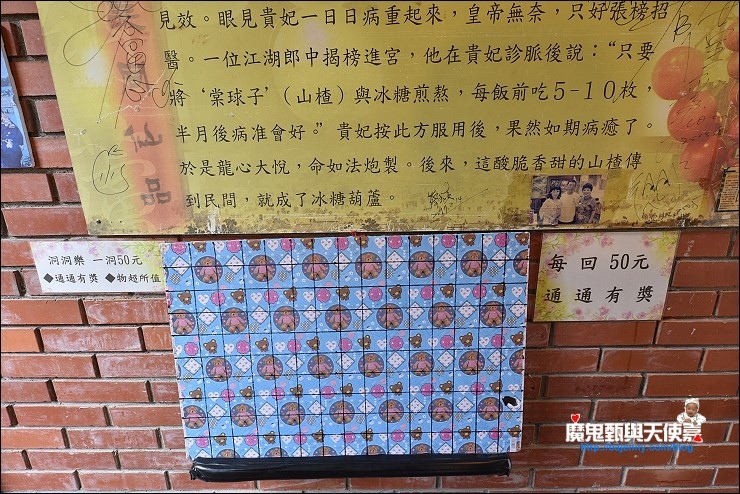 見效。眼見貴妃一日日病重起來，皇帝無奈，只好張榜招
醫。一位江湖郎中揭榜進宮，他在貴妃診脈後說：“只要
將‘棠球子’（山楂）與冰糖煎熬，每飯前吃5-10枚，
半月後病准會好。”貴妃按此方服用後，果然如期病癒了。
於是龍心大悅，命如法炮製。後來，這酸脆香甜的山楂傳
到民間，就成了冰糖葫蘆。
洞洞樂 一洞50元
◆通通有獎 ◆物超所值
每回50元
通通有獎
魔鬼甄與天使嘉